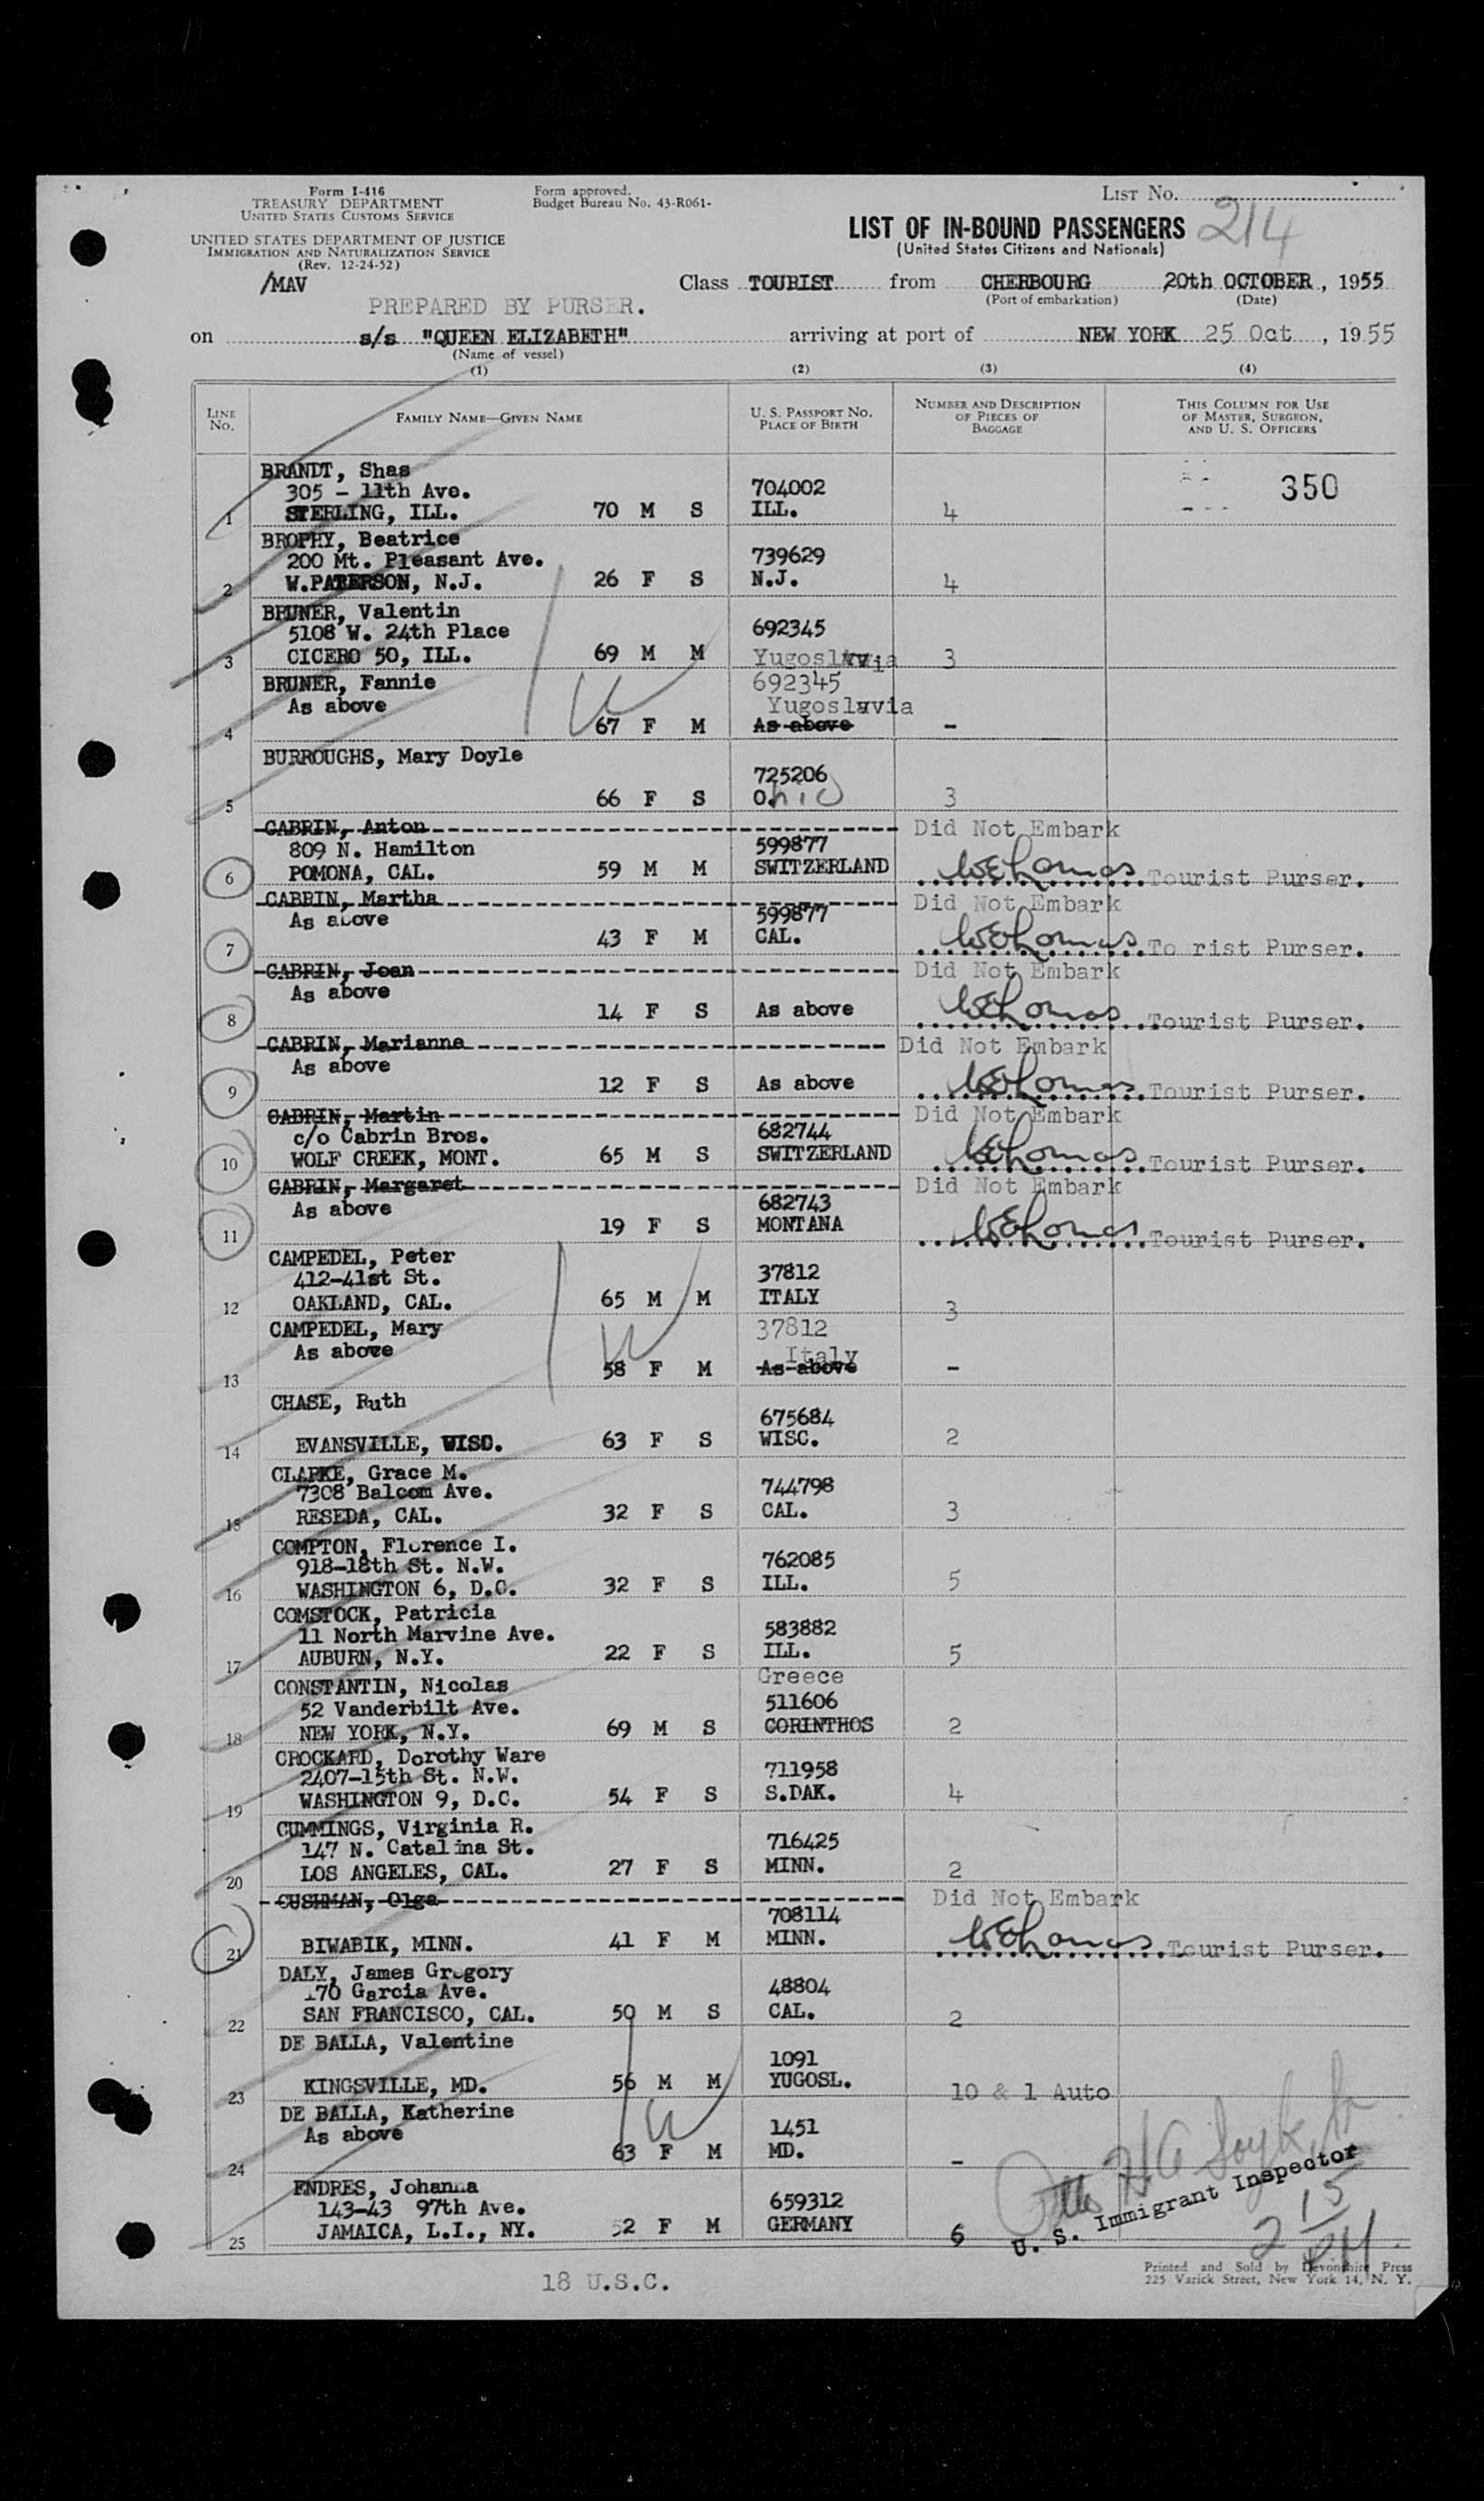 Form I-416
TREASURY DEPARTMENT
UNITED STATES CUSTOMS SERVICE
UNITED STATES DEPARTMENT OF JUSTICE
IMMIGRATION AND NATURALIZATION SERVICE
(Rev. 12-24-52)
/MAV
Form approved.
Budget Bureau No. 43-R061-
LIST No.
LIST OF IN-BOUND PASSENGERS 214
(United States Citizens and Nationals)
Class TOURIST from CHERBOURG 20th OCTOBER, 1955
(Port of embarkation) (Date)
PREPARED BY PURSER.
on s/s "QUEEN ELIZABETH" arriving at port of NEW YORK 25 Oct, 1955
(Name of vessel)
(1) (2) (3) (4)
LINE No. FAMILY NAME—GIVEN NAME U. S. PASSPORT No. PLACE OF BIRTH NUMBER AND DESCRIPTION OF PIECES OF BAGGAGE THIS COLUMN FOR USE OF MASTER, SURGEON, AND U. S. OFFICERS
350
BRANDT, Shas
305 - 11th Ave. 704002
1 STERLING, ILL. 70 M S ILL. 4
BROPHY, Beatrice
200 Mt. Pleasant Ave. 739629
2 W.PATERSON, N.J. 26 F S N.J. 4
BRUNER, Valentin
5108 W. 24th Place 692345
3 CICERO 50, ILL. 69 M M Yugoslavia 3
BRUNER, Fannie 692345
As above Yugoslavia
4 67 F M As above -
BURROUGHS, Mary Doyle
725206
5 66 F S Ohio 3
CABRIN, Anton Did Not Embark
809 N. Hamilton 599877
6 POMONA, CAL. 59 M M SWITZERLAND WEThomas Tourist Purser.
CABRIN, Martha Did Not Embark
As above 599877
7 43 F M CAL. WEThomas To rist Purser.
CABRIN, Joan Did Not Embark
As above
8 14 F S As above WEThomas Tourist Purser.
CABRIN, Marianne Did Not Embark
As above
9 12 F S As above WEThomas Tourist Purser.
CABRIN, Martin Did Not Embark
c/o Cabrin Bros. 682744
10 WOLF CREEK, MONT. 65 M S SWITZERLAND WEThomas Tourist Purser.
CABRIN, Margaret Did Not Embark
As above 682743
11 19 F S MONTANA WEThomas Tourist Purser.
CAMPEDEL, Peter
412-41st St. 37812
12 OAKLAND, CAL. 65 M M ITALY 3
CAMPEDEL, Mary 37812
As above Italy
13 58 F M As above -
CHASE, Ruth
675684
14 EVANSVILLE, WISC. 63 F S WISC. 2
CLARKE, Grace M.
7308 Balcom Ave. 744798
15 RESEDA, CAL. 32 F S CAL. 3
COMPTON, Florence I.
918-18th St. N.W. 762085
16 WASHINGTON 6, D.C. 32 F S ILL. 5
COMSTOCK, Patricia
11 North Marvine Ave. 583882
17 AUBURN, N.Y. 22 F S ILL. 5
CONSTANTIN, Nicolas Greece
52 Vanderbilt Ave. 511606
18 NEW YORK, N.Y. 69 M S CORINTHOS 2
CROCKARD, Dorothy Ware
2407-15th St. N.W. 711958
19 WASHINGTON 9, D.C. 54 F S S.DAK. 4
CUMMINGS, Virginia R.
147 N. Catalina St. 716425
20 LOS ANGELES, CAL. 27 F S MINN. 2
CUSHMAN, Olga Did Not Embark
708114
21 BIWABIK, MINN. 41 F M MINN. WEThomas Tourist Purser.
DALY, James Gregory
170 Garcia Ave. 48804
22 SAN FRANCISCO, CAL. 50 M S CAL. 2
DE BALLA, Valentine
1091
23 KINGSVILLE, MD. 56 M M YUGOSL. 10 & 1 Auto
DE BALLA, Katherine
As above 1451
24 63 F M MD. -
ENDRES, Johanna
143-43 97th Ave. 659312
25 JAMAICA, L.I., NY. 52 F M GERMANY 6
U. S. Immigrant Inspector
2 15 PM
18 U.S.C.
Printed and Sold by Devonshire Press
225 Varick Street, New York 14, N. Y.